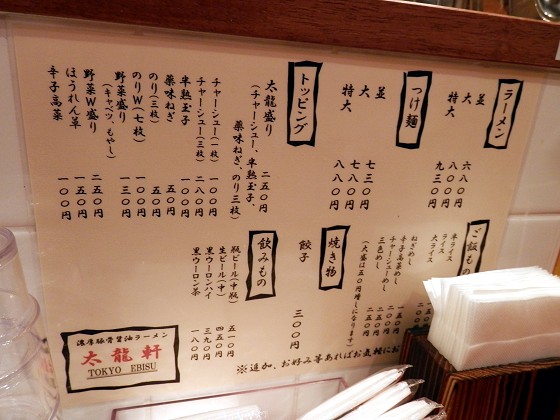 ラーメン
並 六八〇円
大 八〇〇円
特大 九三〇円
つけ麺
並 七三〇円
大 七八〇円
特大 八八〇円
トッピング
太龍盛り 二五〇円
(チャーシュー、半熟玉子、
薬味ねぎ、のり三枚)
チャーシュー(一枚) 一〇〇円
チャーシュー(三枚) 二八〇円
半熟玉子 一〇〇円
薬味ねぎ 五〇円
のり(三枚) 五〇円
のりW(七枚) 一〇〇円
野菜盛り 一三〇円
(キャベツ、もやし)
野菜W盛り 二五〇円
ほうれん草 一五〇円
辛子高菜 一〇〇円
ご飯もの
半ライス
ライス
大ライス
ねぎめし 一五〇円
辛子高菜めし 二〇〇円
チャーシューめし 二五〇円
三色めし 二五〇円
(大盛は五〇円増しになります)
焼き物
餃子 三〇〇円
飲みもの
瓶ビール(中瓶) 五一〇円
生ビール(中) 四五〇円
黒ウーロンハイ 三九〇円
黒ウーロン茶 一八〇円
※追加、お好み等あればお気軽にお
濃厚豚骨醤油ラーメン
太龍軒
TOKYO EBISU